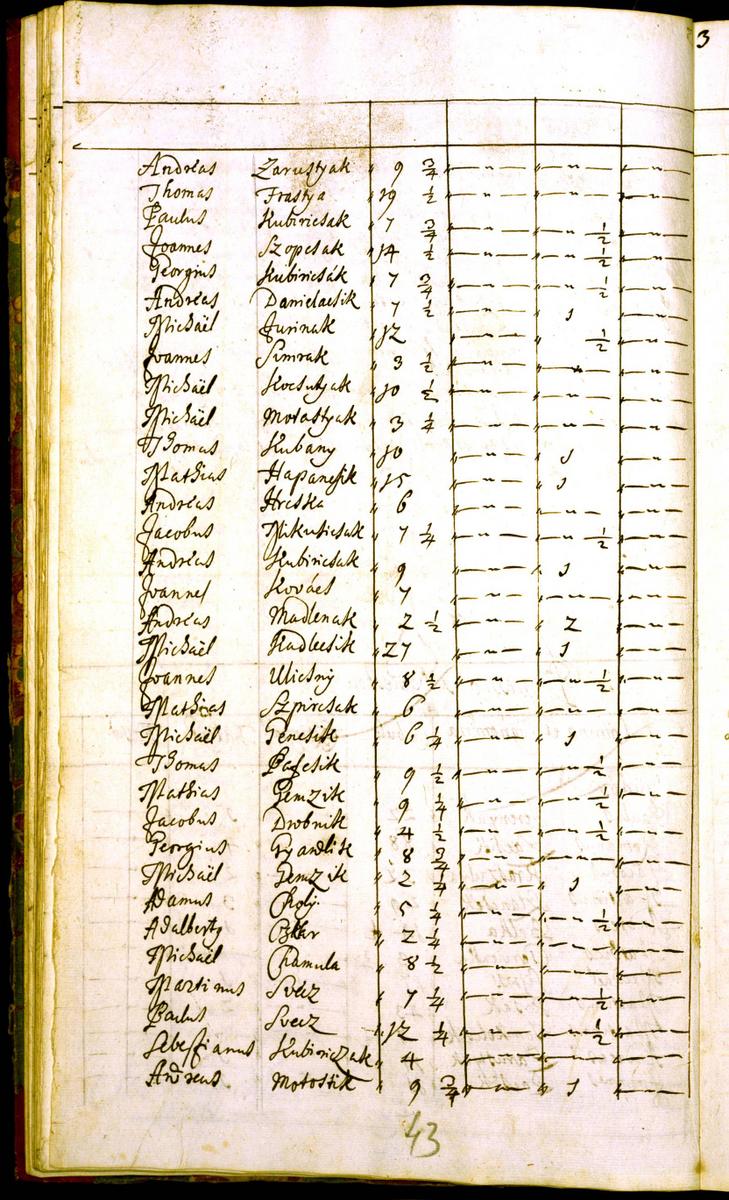 3
Andreas Zarustyak " 9 3/4 "—"— "—"— "—"—
Thomas Frastya " 19 1/2 "—"— "—"— "—"—
Paulus Kubiricsak " 7 3/4 "—"— "—" 1/2 "—"—
Joannes Szopcsak " 14 1/2 "—"— "—" 1/2 "—"—
Georgius Kubiricsák " 7 3/4 "—"— "—" 1/2 "—"—
Andreas Danielacsik " 7 1/2 "—"— " 1 "—"—
Michaël Jurinak " 12 "—"— 1/2 "—"—
Joannes Simrak " 3 1/2 "—"— "—"— "—"—
Michaël Kocsutyak " 10 1/2 "—"— "—"— "—"—
Michaël Morastyak " 3 1/4 "—"— "—"— "—"—
Thomas Kubany " 10 "—"— " 1 "—"—
Mathias Hapanesik " 15 "—"— " 1 "—"—
Andreas Hreska " 6 "—"— "—"— "—"—
Jacobus Mikusicsak " 7 1/4 "—"— "—" 1/2 "—"—
Andreas Kubiricsak " 9 "—"— " 1 "—"—
Joannes Kovács " 7 "—"— "—"— "—"—
Andreas Madlenak " 2 1/2 "—"— " 2 "—"—
Michaël Kadlecsik " 27 "—"— " 1 "—"—
Joannes Ulicsni " 8 1/2 "—"— "—" 1/2 "—"—
Mathias Szpircsak " 6 "—"— "—"— "—"—
Michaël Genesik " 6 1/4 "—"— " 1 "—"—
Thomas " 9 1/2 "—"— "—" 1/2 "—"—
Mathias Gemzik " 9 1/4 "—"— "—" 1/2 "—"—
Jacobus Drobnik " 4 1/2 "—"— "—" 1/2 "—"—
Georgius " 8 3/4 "—"— "—"— "—"—
Michaël Gemzik " 2 1/4 "—"— " 1 "—"—
Adamus " 5 1/4 "—"— "—" 1/2 "—"—
Adalbertg " 2 1/4 "—"— "—"— "—"—
Michaël Chamula " 8 1/2 "—"— "—"— "—"—
Martinus Svecz " 7 1/4 "—"— "—" 1/2 "—"—
Paulus Svecz " 12 1/4 "—"— "—" 1/2 "—"—
Sebestianus Kubiriczak " 4 "—"— "—"— "—"—
Andreas Motostik " 9 3/4 "—"— " 1 "—"—
43